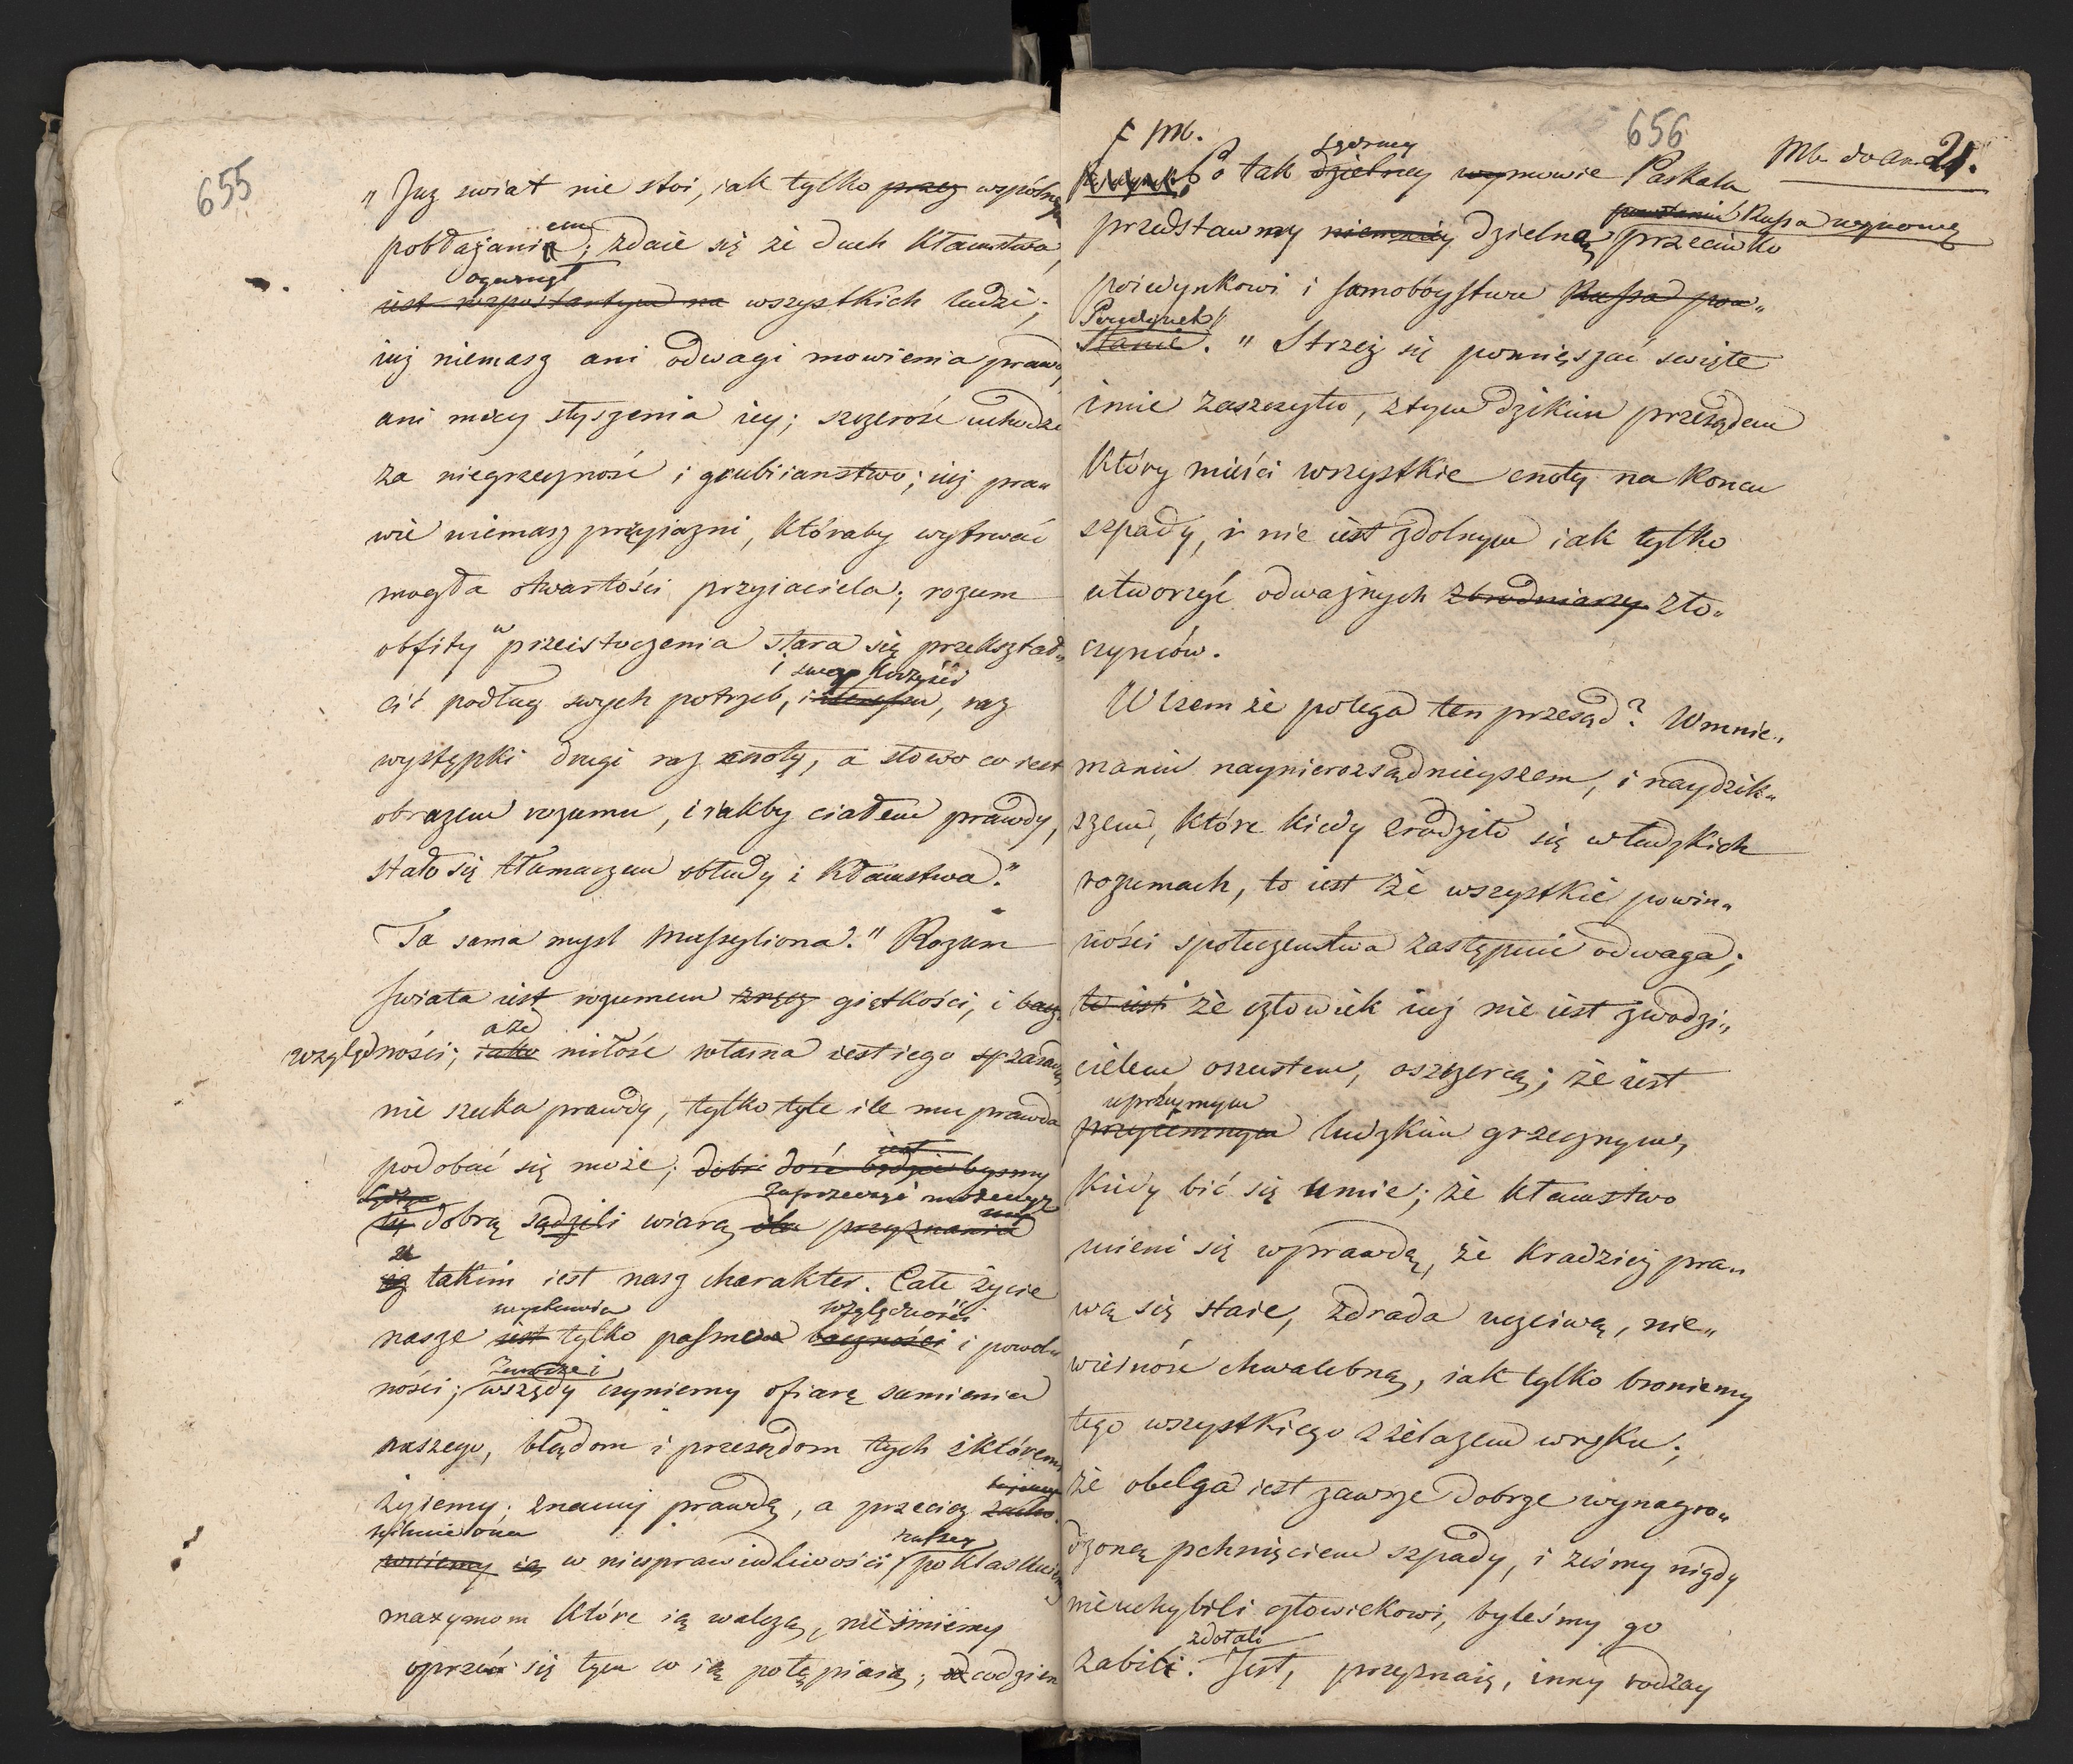 655
„ Juz swiat nie stoi, iak tylko przez wspólnem
pobłażaniem; zdaie się że duch kłamstwa
ogarnął
iest rozpostartym na wszystkich ludzi;
iuż niemasz ani odwagi mowienia prawdy
ani mocy słyszenia iey; szczerość uchodzi
za niegrzeczność i grubiianstwo; iuż pra„
wie niemasz przyjazni, któraby wytrwać
mogła otwartości przyiaciela; rozum
obfity w przeistoczenia stara się przekształ„
i swego korzyści
cić podług swych potrzeb, i interessu, raz
występki drugi raz cnotę, a słowo co iest
obrazem rozumu, i iakby ciałem prawdy,
stało się tłumaczem obłudy i kłamstwa."
Ta sama mysl Massyliona." Rozum
swiata iest rozumem giętkości, i
względności; iako miłość własna iest iego
nie szuka prawdy, tylko tyle ile mu prawda
iest
podobać się może; dobr dość będzie bysmy
zaprzeczyć możemy
dobrą sądzili wiarą dla przyznania
że
iż takim iest nasz charakter. Całe życie
względności
nasze iest tylko pasmem baczności i powol
ności; wszędy czyniemy ofiarę sumienia
naszego, błędom i przesądom tych z którem
żyiemy; znamy prawdę, a przecież
ią w niesprawiedliwości, poklaskuiem
maxymom które ią walczą, nieśmiemy
oprzeć się tym co ią potępiaią; codzien
656
Mb. 21.
Po tak dzielney wymowie Paskala
powstanie Russa wymowę
przedstawmy niemniey dzielną przeciwko
poiedynkowi i samobóystwu Russa pow„
Poiedynek
stanie. " Strzeż się pomięszać swięte
imie zaszczytu, z tym dzikim przesądem
który mieści wszystkie cnoty na koncu
szpady, i nie iest zdolnym iak tylko
utworzyć odważnych zbrodniarzy zło„
czyńców.
W czem że polega ten przesąd? W mnie„
maniu naynierozsądnieyszem, i naydzik„
szem, które kiedy zrodziło się w ludzkich
rozumach, to iest że wszystkie powin„
ności społeczenstwa zastępuie odwaga;
to iest że człowiek iuż nie iest zwodzi„
cielem oszustem, oszczercą; że iest
uprzeymym
przyiemnym ludzkim grzecznym,
kiedy bić się umie; że kłamstwo
mieni się w prawdę, że kradzież pra„
wą się staie, zdrada uczciwą, nie„
wierność chwalebną, iak tylko broniemy
tego wszystkiego z żelazem w ręku;
że obelga iest zawsze dobrze wynagro„
dzoną pchnięciem szpady, i ześmy nigdy
nieuchybili człowiekowi, byleśmy go
zdołali
zabili. Jest, przyznaię, inny rodzay